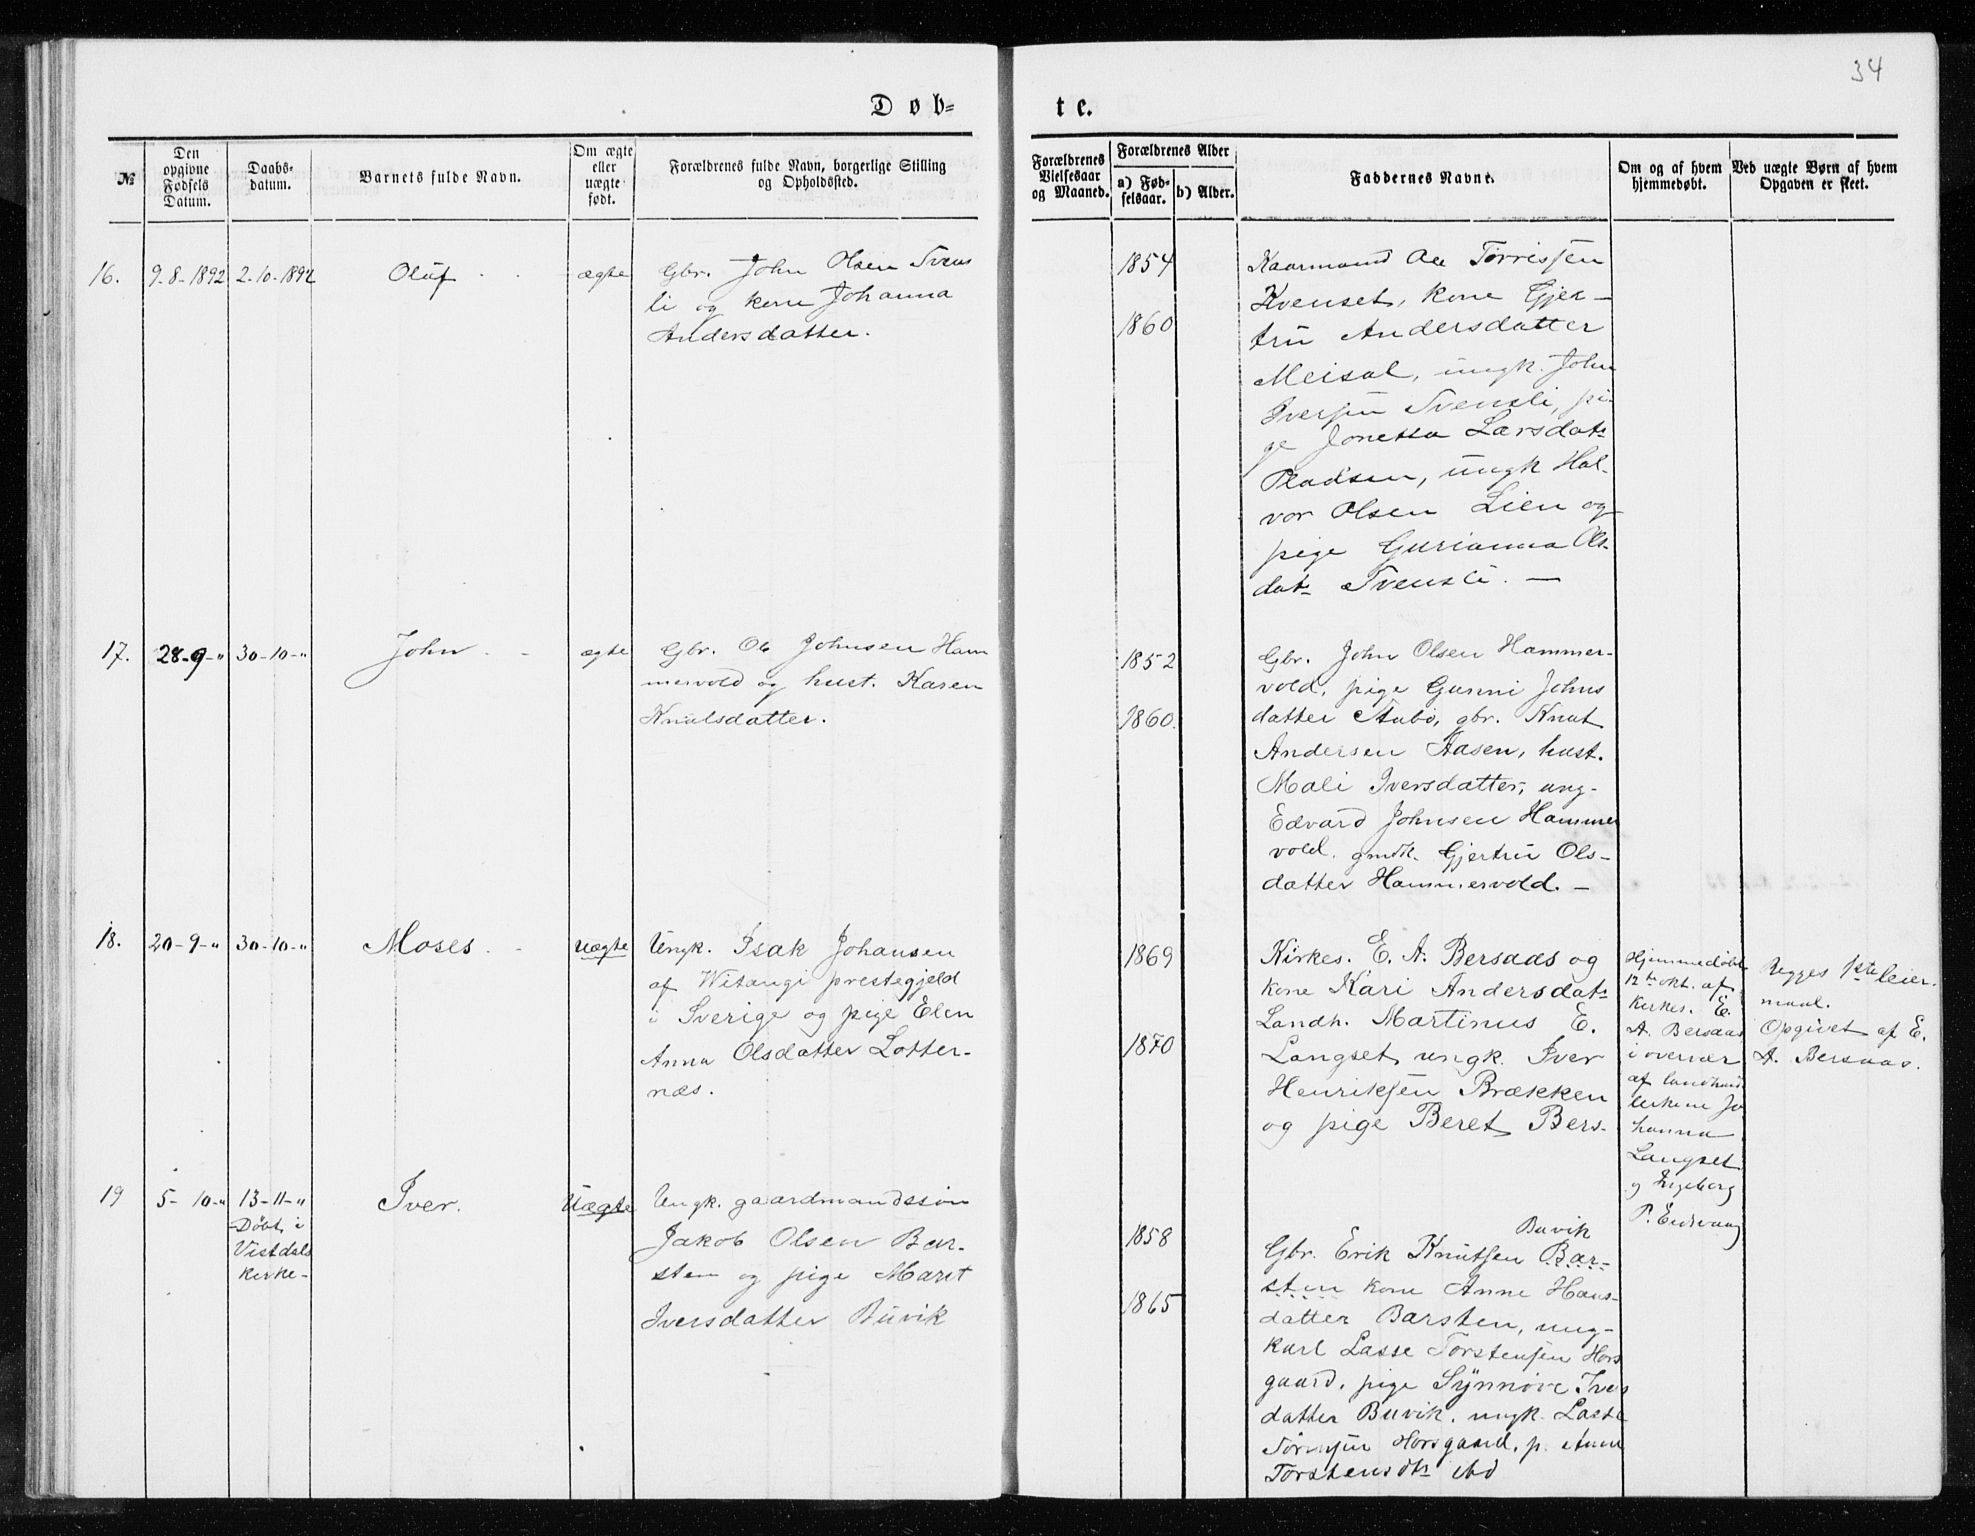 34
Døb=
te.
№
Den
opgivne
Fødsels
Datum.
Daabs=
datum.
Barnets fulde Navn.
Om ægte
eller
uægte
født.
Forældrenes fulde Navn, borgerlige Stilling
og Opholdssted.
Forældrenes
Vielsesaar
og Maaned.
Forældrenes Alder
a) Fød=
selsaar.
b) Alder.
Faddernes Navne.
Om og af hvem
hjemmedøbt.
Ved uægte Børn af hvem
Opgaven er skeet.
16.
9-8-1892
2-10-1892
Oluf
ægte
Gbr. John Olsen Svens
li og kone Johanna
Andersdatter.
1854
1860
Kaarmand Ole Tørrissen
Kvenset, kone Gjer-
tru Andersdatter
Meisal, ungk. John
Iversen Svensli, pi-
ge Jonetta Larsdat-
Pladsen, ungk Hal-
vor Olsen Lien og
pige Gurianna Ols-
dat- Svensli. —
17.
28-9-"
30-10-"
John
ægte
Gbr. Ole Johnsen Ham
mervold og hust. Karen
Knutsdatter.
1852
1860.
Gbr. John Olsen Hammer-
vold, pige Gunni Johns
datter Stubø, gbr. Knut
Andersen Aasen, hust.
Mali Iversdatter, ung-
Edvard Johnsen Hammer
vold. gmdk. Gjertru Ols-
datter Hammervold. —
18.
20-9-"
30-10-"
Moses
Uægte
Ungk. Isak Johansen
af Witangi prestegjeld
i Sverige og pige Elen
Anna Olsdatter Lotter-
næs.
1869
1870
Kirkes. E. A. Bersaas og
kone Kari Andersdat-
Landh. Martinus E.
Langset, ungk. Iver
Henriksen Brækken
og pige Beret Bers-
Hjemmedøbt
12te okt. af
kirkes. E.
A. Bersaas
i overvær
af landhand
lerkone Jo
hanna
Langset
og Ingeborg
P. Eidsvaag
Begges 1ste leier-
maal.
Opgivet af E.
A. Bersaas.
19
5-10-"
13-11-"
Døbt i
Vistdals
kirke-
Iver.
Uægte
Ungk. gaardmandssøn
Jakob Olsen Bar-
sten og pige Marit
Iversdatter Buvik
1858
1865
Buvik
Gbr. Erik Knutsen Bar-
sten kone Anne Hans-
datter Barsten, ung-
karl Lasse Torstensen Hors
gaard, pige Synnøve Ivers
datter Buvik, ungk. Lasse
Horsgaard, p. Anne
Torstensdtr ibd